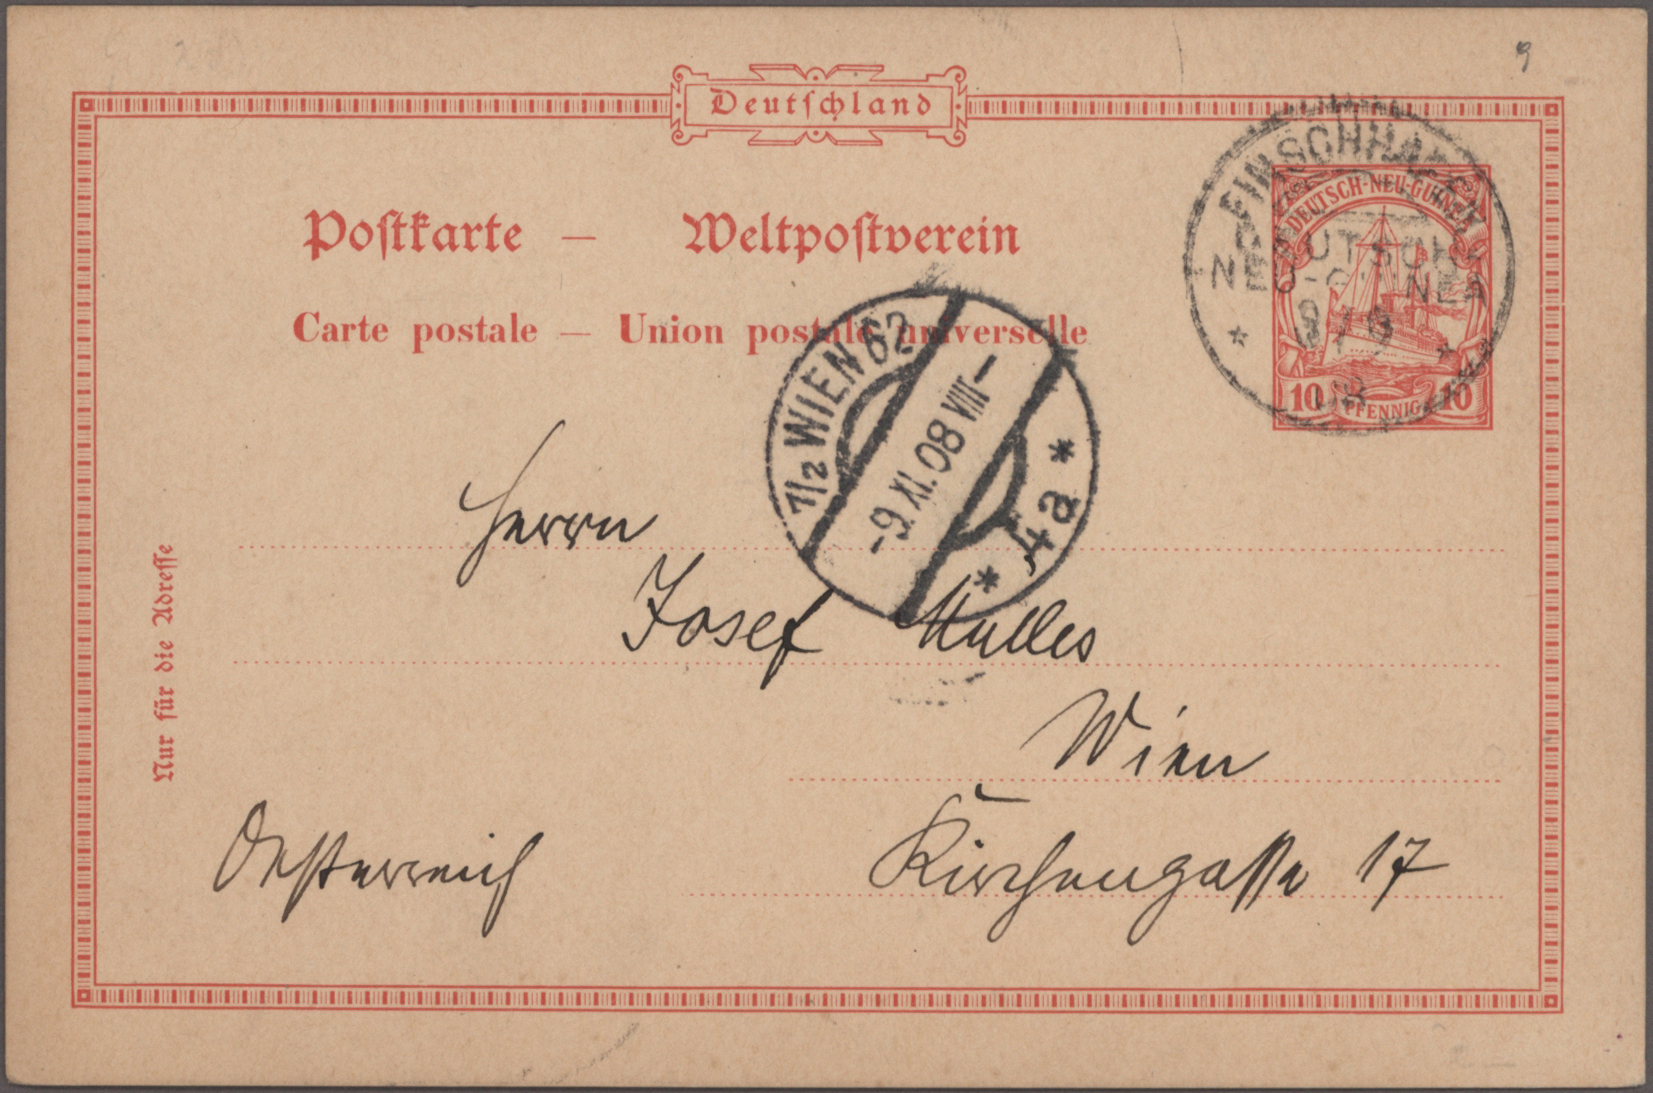 9
Deutſchland
Poſtkarte — Weltpoſtverein
Carte postale — Union postale universelle
FINSCHHAFEN
DEUTSCH-
NEU-GUINEA
* *
08
DEUTSCH-NEU-GUINEA
10 PFENNIG 10
1/2 WIEN 62
-9.XI.08 VIII-
* 4a *
Nur für die Adreſſe
Herrn
Josef
Wien
Oesterreich
Kirchengasse 17